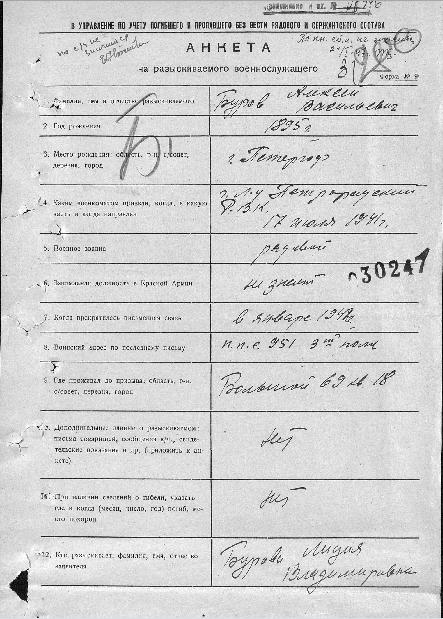 В УПРАВЛЕНИЕ ПО УЧЕТУ ПОГИБШЕГО И ПРОПАВШЕГО БЕЗ ВЕСТИ РЯДОВОГО И СЕРЖАНТСКОГО СОСТАВА
АНКЕТА
на разыскиваемого военнослужащего
Форма №
Фамилия, имя и отчество разыскиваемого
Буров Алексей
Васильевич
2. Год рождения
1895 г
3. Место рождения: область, р-н, с/совет,
деревня, город
г. Петергоф
4. Каким военкоматом призван, когда, в какую
часть и когда направлен
Петроградский
Р.В.К.
17 июля 1941 г.
5. Военное звание
рядовой
6. Занимаемая должность в Красной Армии
не знаю
030247
7. Когда прекратилась письменная связь
в январе 1942 г.
8. Воинский адрес по последнему письму
п.п.с 951 3 полк
9. Где проживал до призыва: область, р-н,
с/совет, деревня, город
Большой 69 кв 18
Дополнительные данные о разыскиваемом:
письма товарищей, сообщения в/ч, свиде-
тельские показания и пр. (приложить к ан-
кете)
Нет
11. При наличии сведений о гибели, указать
где и когда (месяц, число, год) погиб, ме-
сто похорон
Нет
12. Кто разыскивает: фамилия, имя, отчество
заявителя
Бурова Лидия
Владимировна
Б